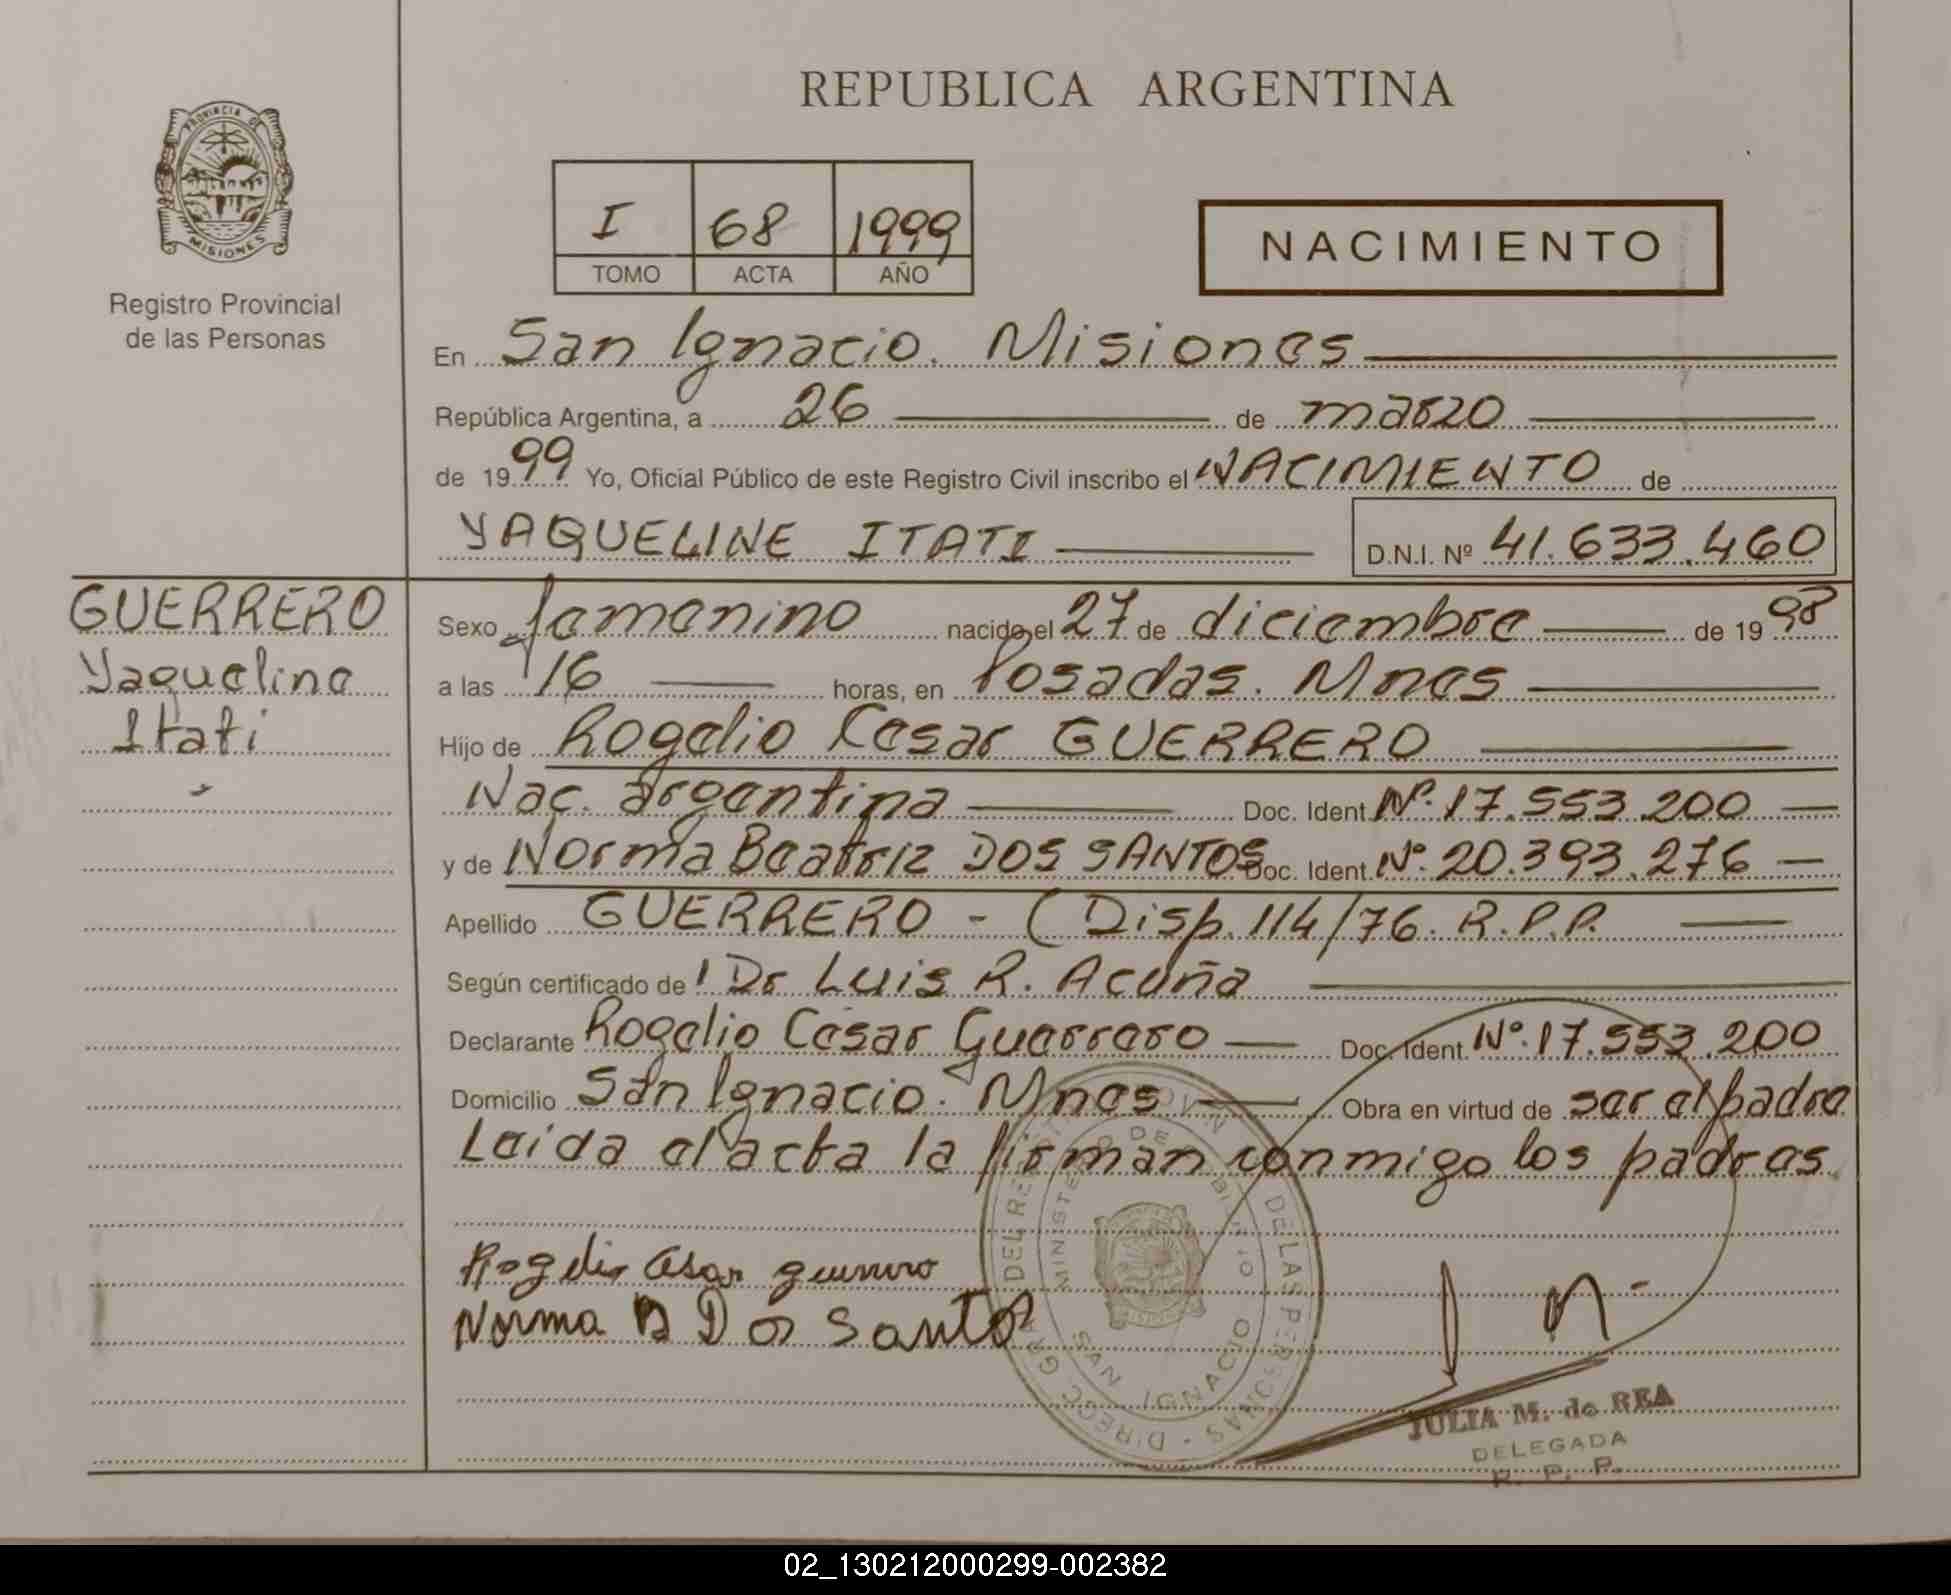 REPUBLICA ARGENTINA
PROVINCIA DE
MISIONES
Registro Provincial
de las Personas
I 68 1999
TOMO ACTA AÑO
NACIMIENTO
En San Ignacio. Misiones
República Argentina, a 26 de marzo
de 1999 Yo, Oficial Público de este Registro Civil inscribo el NACIMIENTO de
YAQUELINE ITATI D.N.I. Nº 41.633.460
GUERRERO
Yaqueline
Itati
Sexo femenino nacido el 27 de diciembre de 1998
a las 16 horas, en Posadas. Mnes
Hijo de Rogelio Cesar GUERRERO
Nac. argentina Doc. Ident Nº. 17.553.200
y de Norma Beatriz DOS SANTOS Doc. Ident Nº. 20.393.276
Apellido GUERRERO - (Disp. 114/76. R.P.P.
Según certificado de Dr Luis R. Acuña
Declarante Rogelio Cesar Guerrero Doc. Ident. Nº. 17.553.200
Domicilio San Ignacio. Mnes Obra en virtud de ser el padre
Leida el acta la firman conmigo los padres.
Rogelio Cesar Guerrero
Norma B Dos Santos
DE LAS PERSONAS
MINISTERIO DE
SAN IGNACIO
JULIA M. de REA
DELEGADA
R. P. P.
02_130212000299-002382